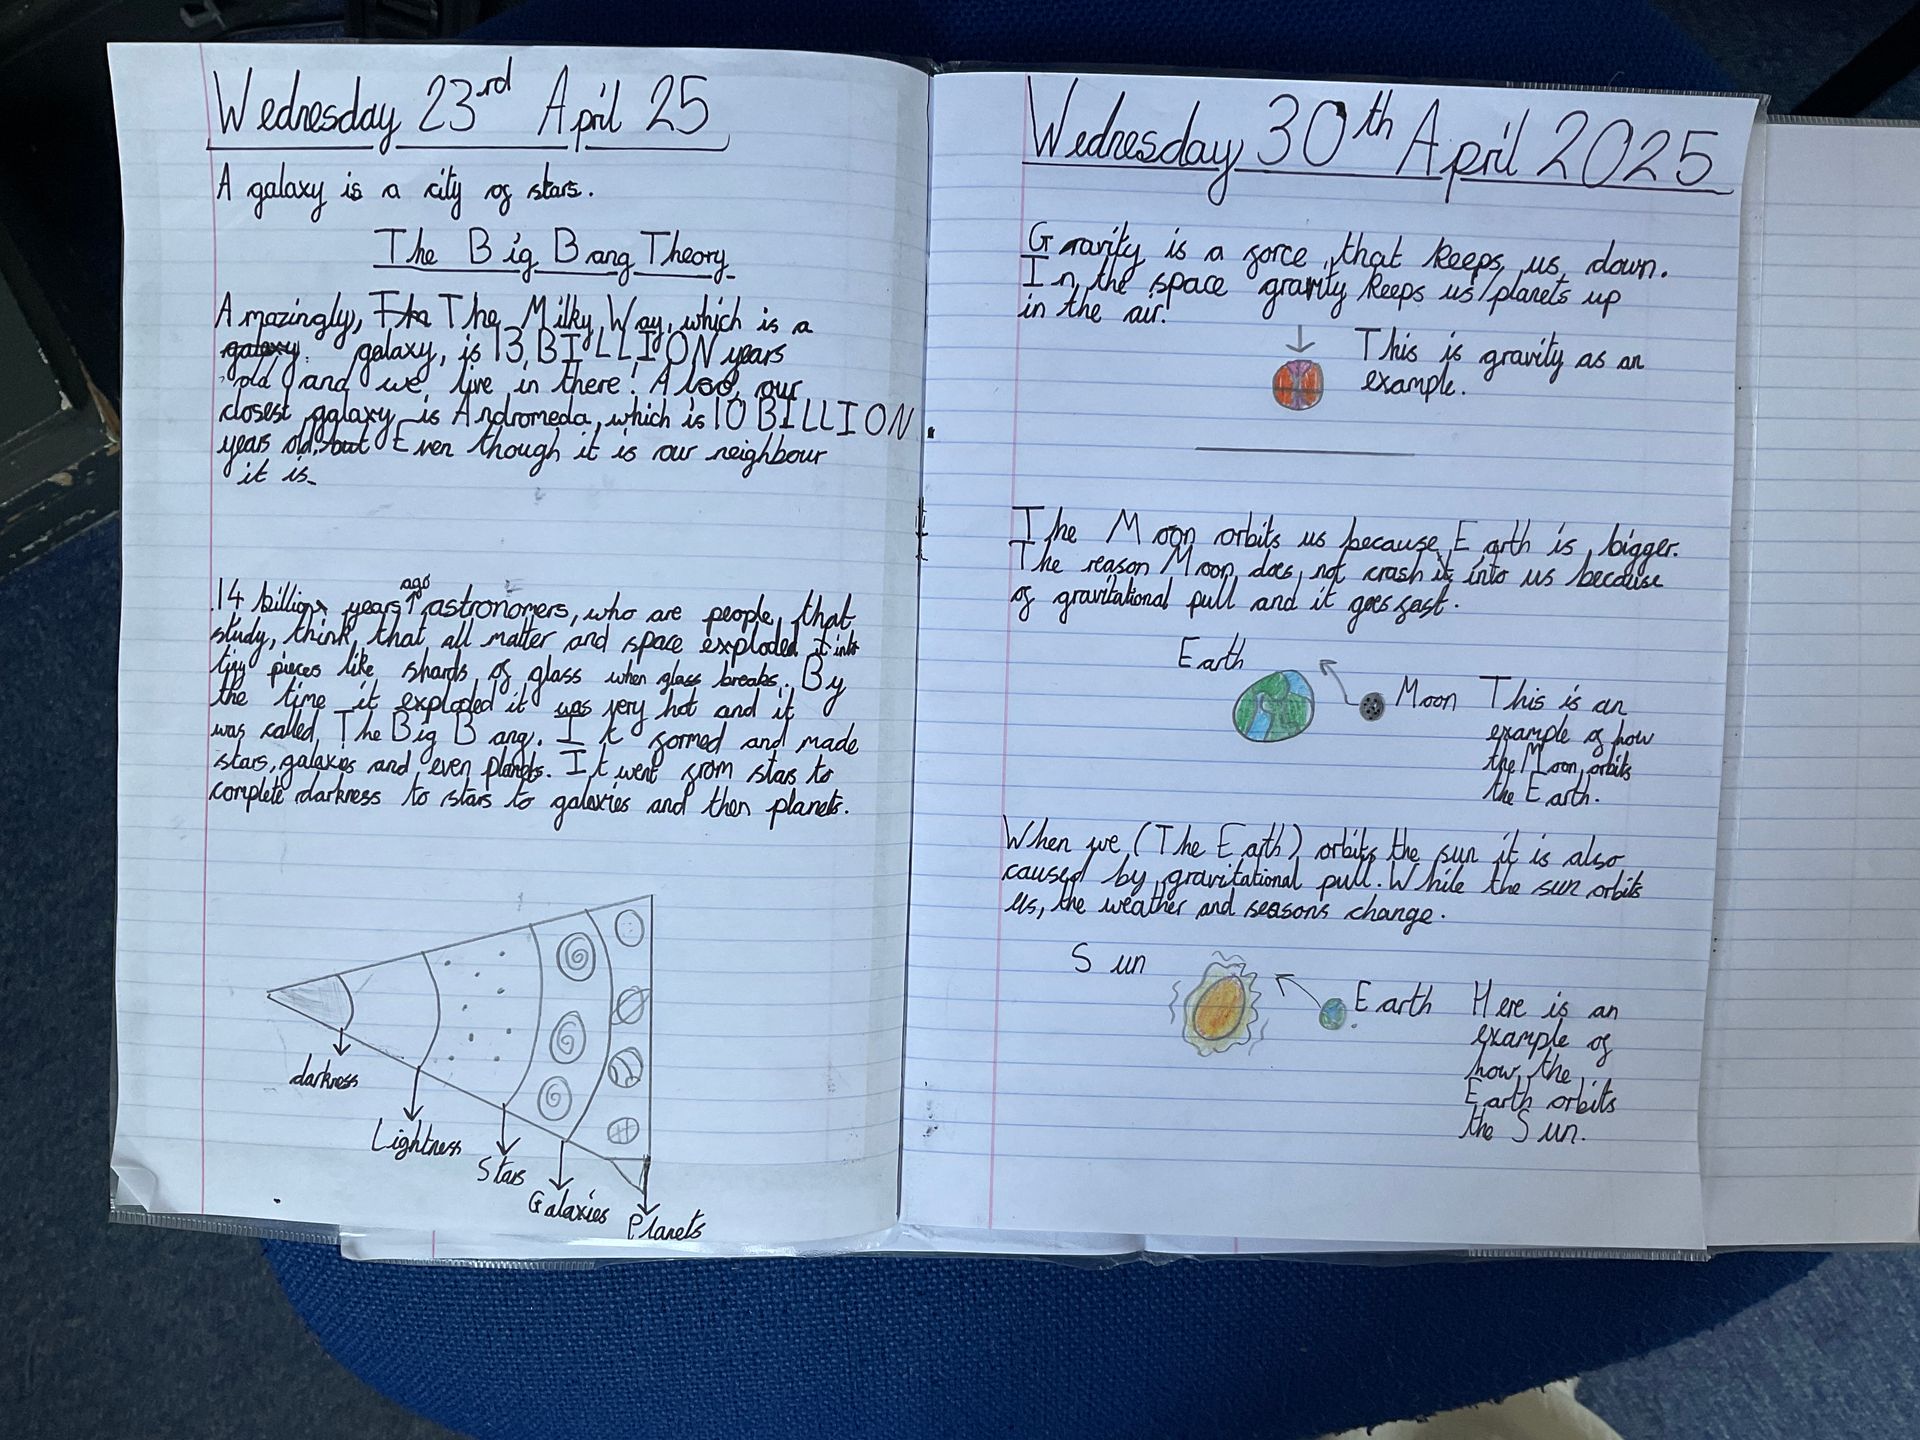 Wednesday 23rd April 25
A galaxy is a city of stars.
The Big Bang Theory
Amazingly, The The Milky Way, which is a
galaxy galaxy, is 13 BILLION years
old and we live in there! Also, our
closest galaxy is Andromeda, which is 10 BILLION
years old, but Even though it is our neighbour
it is
14 billion years ago astronomers, who are people, that
study, think, that all matter and space exploded it into
tiny pieces like shards of glass when glass breaks. By
the time it exploded it was very hot and it
was called, The Big Bang. It formed and made
stars, galaxies and even planets. It went from stars to
complete darkness to stars to galaxies and then planets.
darkness
Lightness
Stars
Galaxies
Planets
Wednesday 30th April 2025
Gravity is a force, that keeps us down.
In the space gravity keeps us/planets up
in the air!
This is gravity as an
example.
The Moon orbits us because Earth is bigger.
The reason Moon does not crash it into us because
of gravitational pull and it goes fast.
Earth
Moon
This is an
example of how
the Moon orbits
the Earth.
When we (The Earth) orbits the sun it is also
caused by gravitational pull. While the sun orbits
us, the weather and seasons change.
Sun
Earth
Here is an
example of
how the
Earth orbits
the Sun.